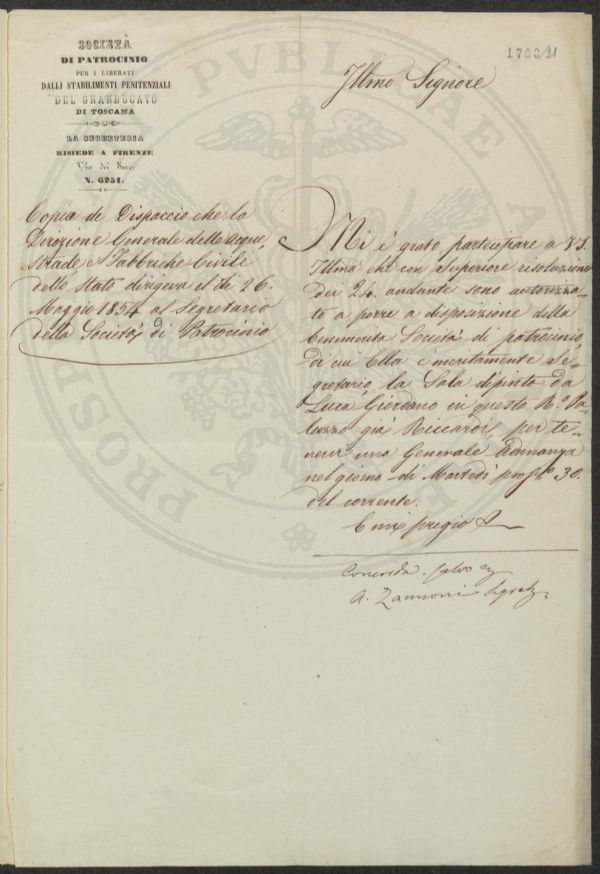 SOCIETÀ
DI PATROCINIO
PER I LIBERATI
DALLI STABILIMENTI PENITENZIALI
DEL GRANDUCATO
DI TOSCANA
LA SEGRETERIA
RISIEDE A FIRENZE
Via dei Servi
N. 6251.
1788/21
Illmo Signore
Copia di Dispaccio che la
Direzione Generale delle Acque,
Strade e Fabbriche Civili
dello Stato dirigeva il dì 26.
Maggio 1854 al Segretario
della Società di Patrocinio
Mi è grato partecipare a VS.
Illma che con Superiore risoluzione
dei 24. andante sono autorizza-
to a porre a disposizione della
benemerita Società di patrocinio,
di cui Ella è meritamente Se-
gretario, la Sala dipinta da
Luca Giordano in questo R.o Pa-
lazzo già Riccardi, per te-
nervi una Generale Adunanza
nel giorno di Martedì pross.o 30.
del corrente.
E mi pregio
Concorda. Salvo
A. Zannoni Segret.
PVBLICAE